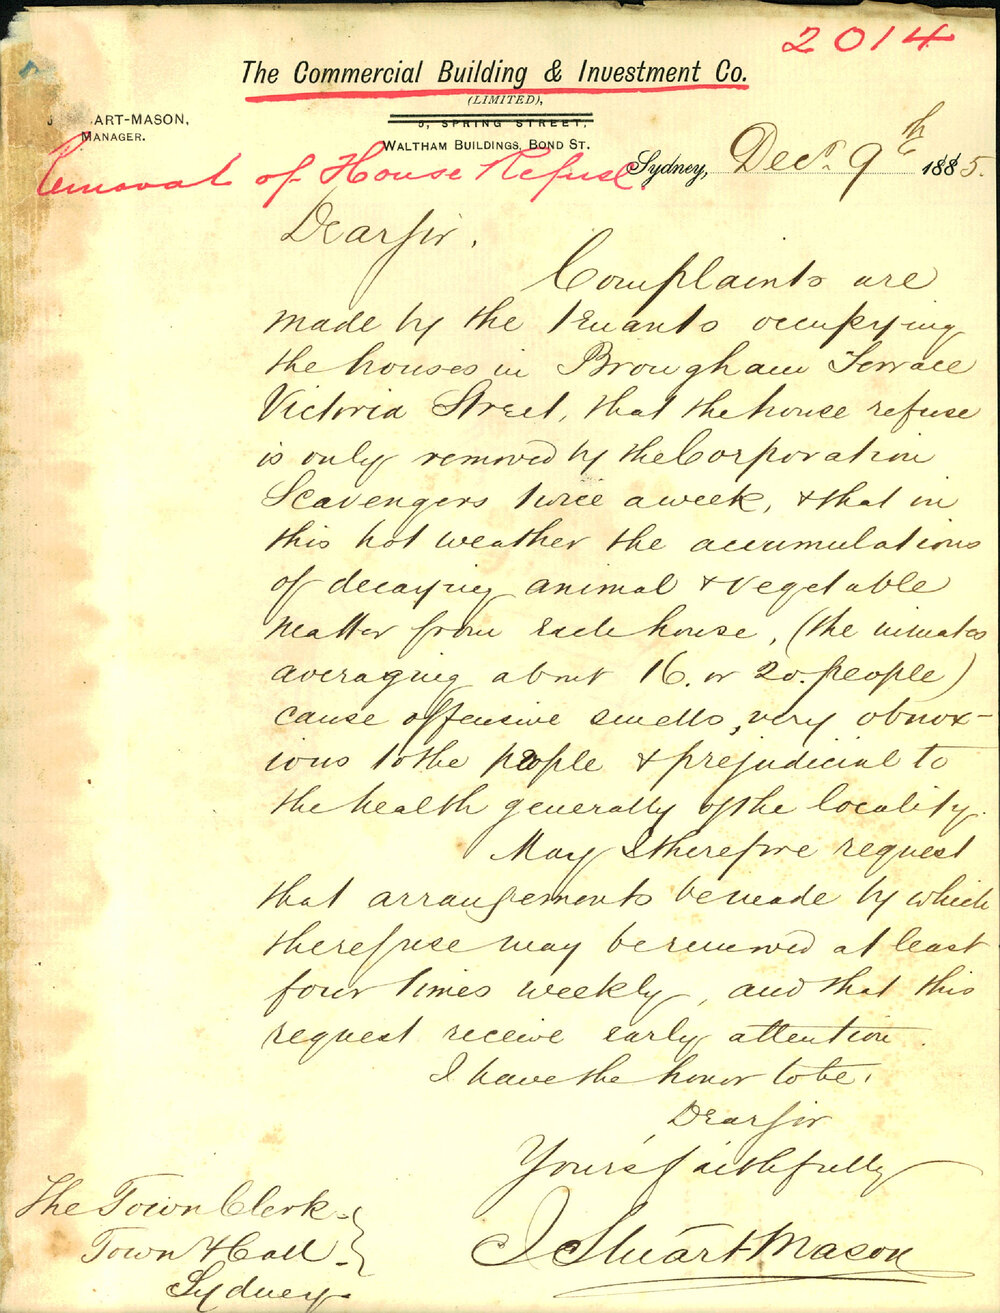 2014
The Commercial Building & Investment Co.
(LIMITED),
ART-MASON,
MANAGER.
5, SPRING STREET,
WALTHAM BUILDINGS, BOND ST.
Removal of House Refuse.
Sydney, Decr. 9th 1885.
Dear Sir,
Complaints are
made by the tenants occupying
the houses in Brougham Terrace
Victoria Street, that the house refuse
is only removed by the Corporation
Scavengers twice a week, & that in
this hot weather the accumulations
of decaying animal & vegetable
matter from each house, (the inmates
averaging about 16. or 20. people)
cause offensive smells, very obnox-
ious to the people & prejudicial to
the health generally of the locality.
May I therefore request
that arrangements be made by which
the refuse may be removed at least
four times weekly, and that this
request receive early attention.
I have the honor to be,
Dear Sir
Yours faithfully
J Stuart Mason
The Town Clerk
Town Hall
Sydney